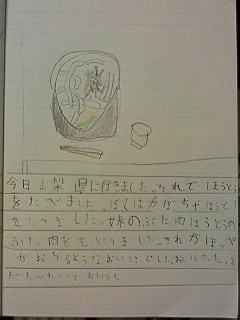 今日山梨県に行きました。それでほうとう
をたべました。ぼくはかぼちゃほうとう
をたべました。妹のぶた肉ほうとうの
ぶた肉をもらいました。それがほっぺ
がおちるようなおいしさでした。